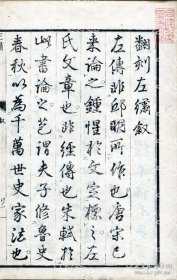 翻刻左繡敘
左傳非邱明所作也唐宋已
来論之鍾惺於文定標之左
氏文章也非經傳也朱軾於
此書論之芑謂夫子修魯史
春秋以為千萬世史家法也